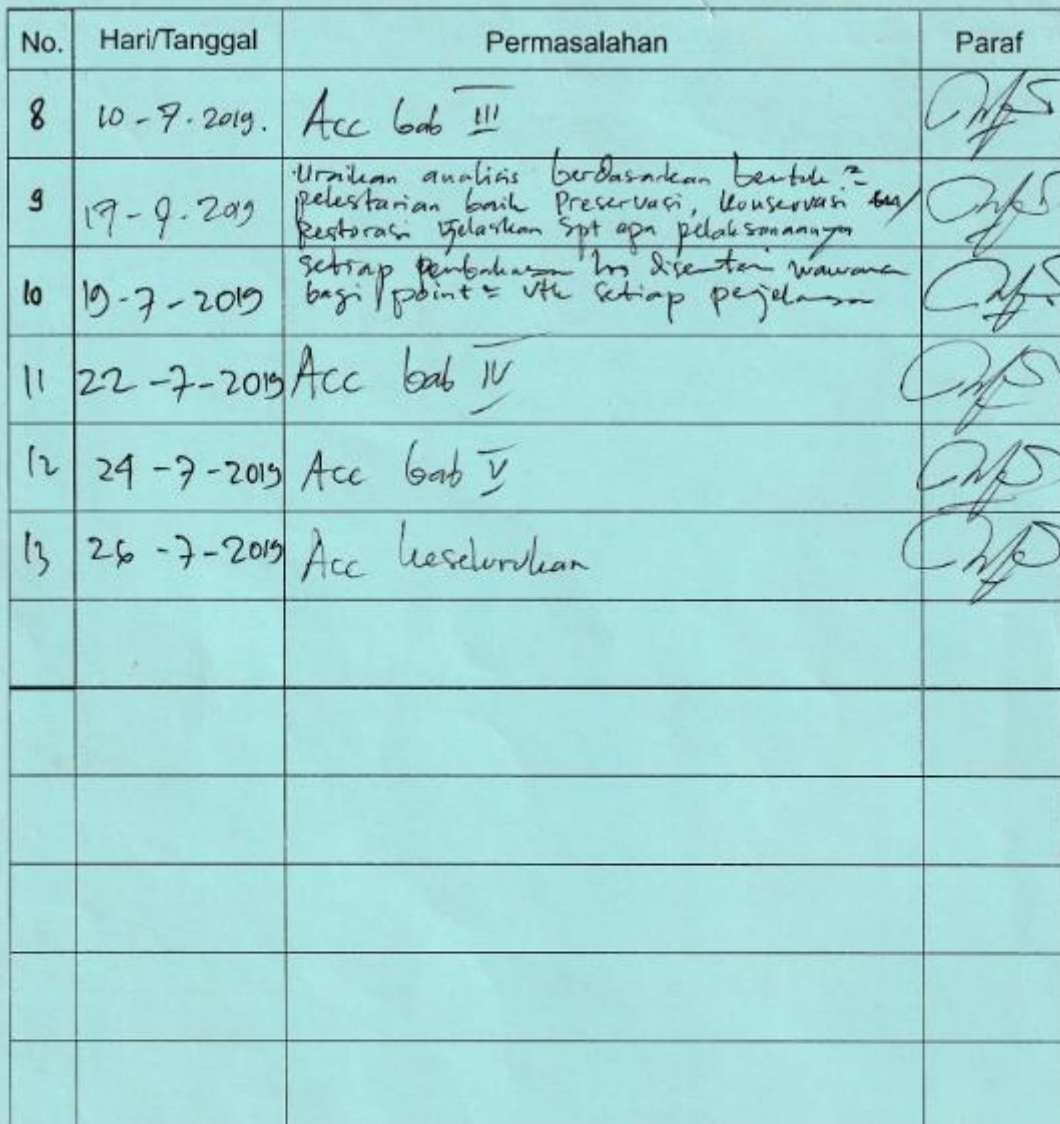 No. Hari/Tanggal Permasalahan Paraf
8 10-7-2019. Acc bab III
9 17-9-2019 Uraikan analisis berdasarkan bentuk =
pelestarian baik Preservasi, Konservasi
Restorasi Jelaskan Spt apa pelaksanaannya
10 19-7-2019 setiap pembahasan hrs disertai
bagi point = utk setiap penjelasan
11 22-7-2019 Acc bab IV
12 24-7-2019 Acc bab V
13 26-7-2019 Acc keseluruhan